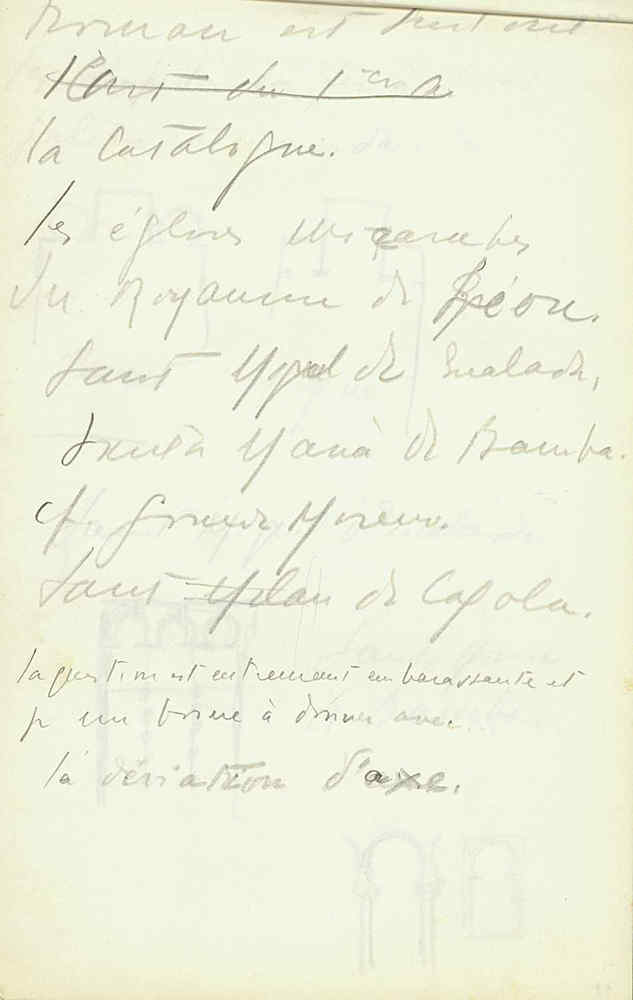 Roman est
l'art du 1er a
la Catalogne.
les églises mozarabes
du Royaume de Léon.
Saint Mgel de Escalada,
Santa Maria de Bamba.
cf. Gomez Moreno.
Saint Milan de Cogola.
la question est extremement embarassante et
je me borne à donner avec
la déviation d'axe.